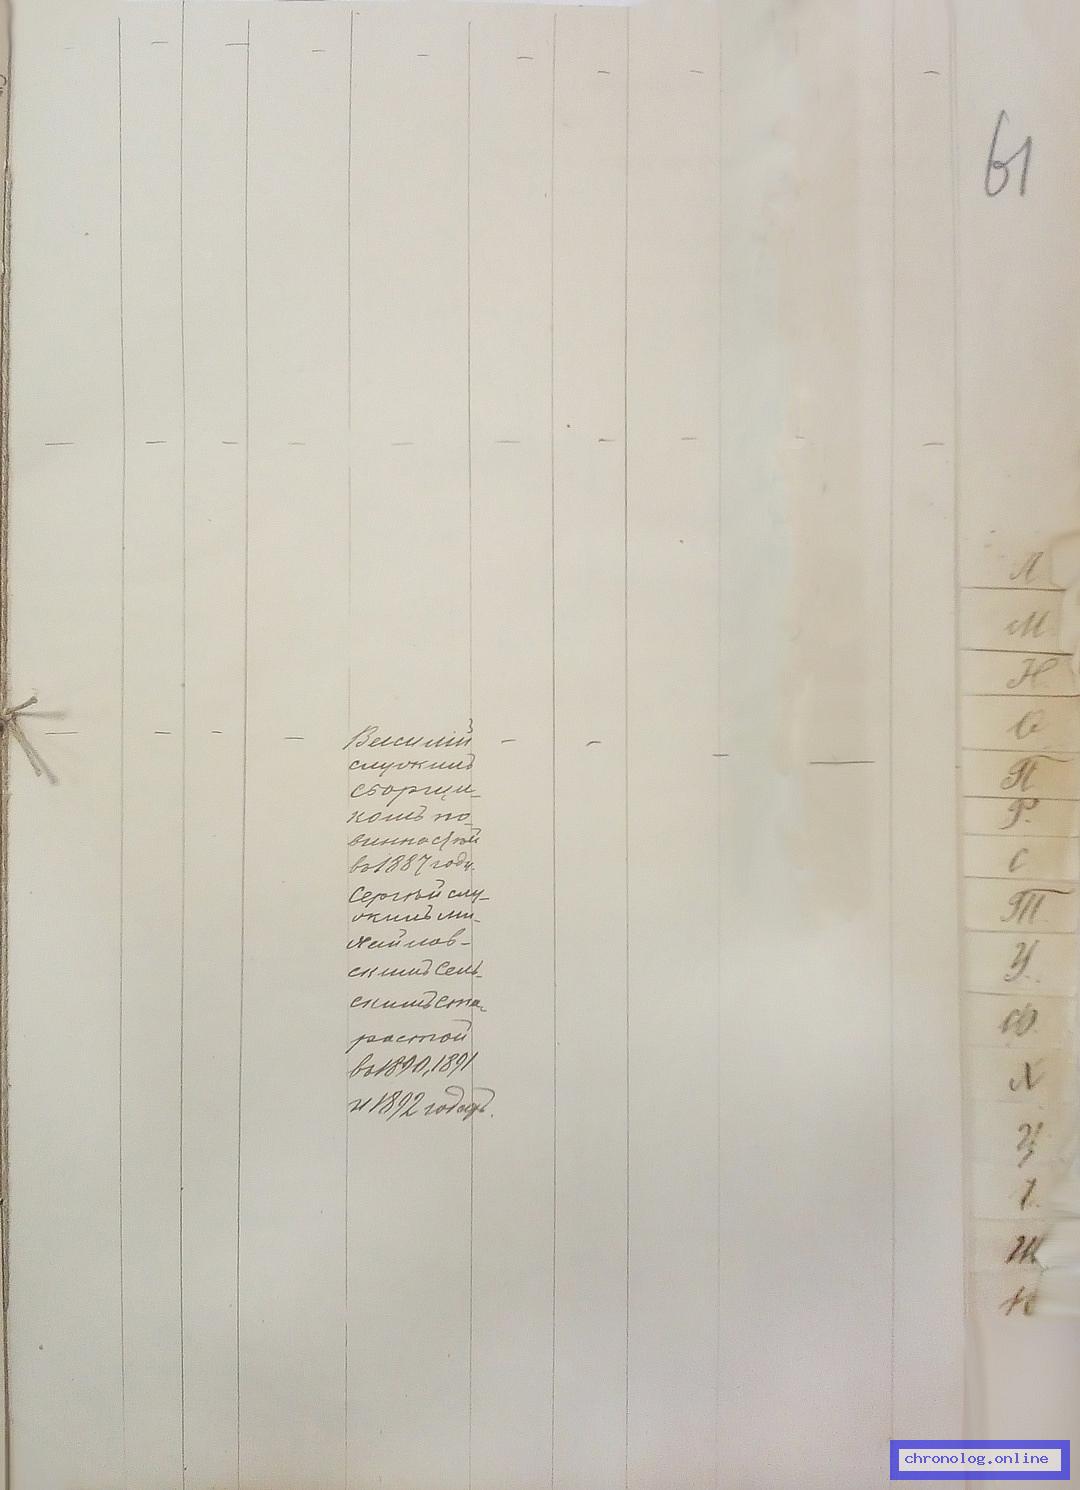 61
Василій
служилъ
сборщи-
комъ по-
винностей
въ 1887 году.
Сергѣй слу-
жилъ Ми-
хайлов-
скимъ Сель-
скимъ Ста-
ростой
въ 1890, 1891
и 1892 годахъ.
Л
М
Н
О
П
Р.
С
Т
У
Ф
Х
Ц
Ч
Ш
chronolog.online